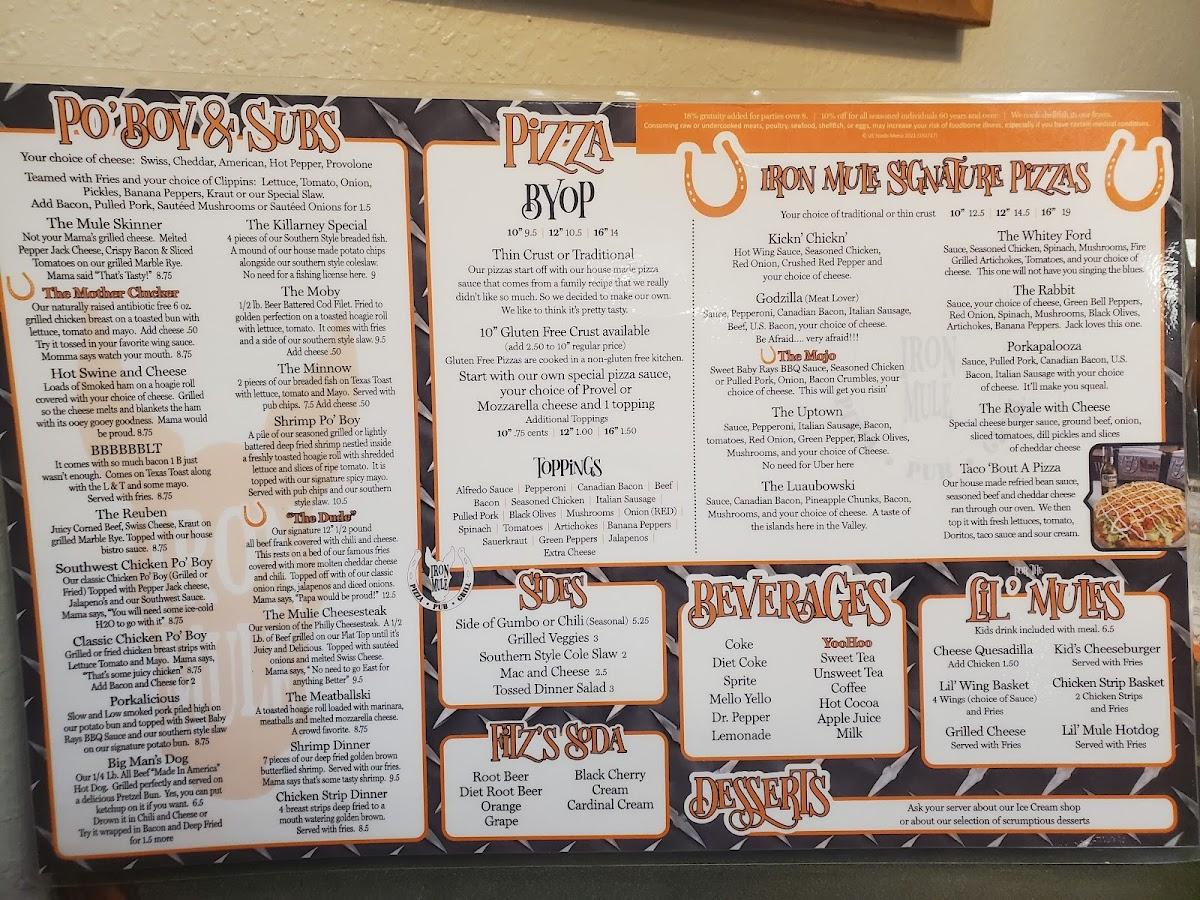 PO' BOY & SUBS
Your choice of cheese: Swiss, Cheddar, American, Hot Pepper, Provolone
Teamed with Fries and your choice of Clippins: Lettuce, Tomato, Onion,
Pickles, Banana Peppers, Kraut or our Special Slaw.
Add Bacon, Pulled Pork, Sautéed Mushrooms or Sautéed Onions for 1.5
The Mule Skinner
Not your Mama's grilled cheese. Melted
Pepper Jack Cheese, Crispy Bacon & Sliced
Tomatoes on our grilled Marble Rye.
Mama said "That's Tasty!" 8.75
The Mother Clucker
Our naturally raised antibiotic free 6 oz.
grilled chicken breast on a toasted bun with
lettuce, tomato and mayo. Add cheese .50
Try it tossed in your favorite wing sauce.
Momma says watch your mouth. 8.75
Hot Swine and Cheese
Loads of Smoked ham on a hoagie roll
covered with your choice of cheese. Grilled
so the cheese melts and blankets the ham
with its ooey gooey goodness. Mama would
be proud. 8.75
BBBBBBLT
It comes with so much bacon 1 B just
wasn't enough. Comes on Texas Toast along
with the L & T and some mayo.
Served with fries. 8.75
The Reuben
Juicy Corned Beef, Swiss Cheese, Kraut on
grilled Marble Rye. Topped with our house
bistro sauce. 8.75
Southwest Chicken Po' Boy
Our classic Chicken Po' Boy (Grilled or
Fried) Topped with Pepper Jack cheese,
Jalapeno's and our Southwest Sauce.
Mama says, "You will need some ice-cold
H2O to go with it" 8.75
Classic Chicken Po' Boy
Grilled or fried chicken breast strips with
Lettuce Tomato and Mayo. Mama says,
"That's some juicy chicken" 8.75
Add Bacon and Cheese for 2
Porkalicious
Slow and Low smoked pork piled high on
our potato bun and topped with Sweet Baby
Rays BBQ Sauce and our southern style slaw
on our signature potato bun. 8.75
Big Man's Dog
Our 1/4 Lb. All Beef "Made In America"
Hot Dog. Grilled perfectly and served on
a delicious Pretzel Bun. Yes, you can put
ketchup on it if you want. 6.5
Drown it in Chili and Cheese or
Try it wrapped in Bacon and Deep Fried
for 1.5 more
The Killarney Special
4 pieces of our Southern Style breaded fish.
A mound of our house made potato chips
alongside our southern style coleslaw.
No need for a fishing license here. 9
The Moby
1/2 lb. Beer Battered Cod Filet. Fried to
golden perfection on a toasted hoagie roll
with lettuce, tomato. It comes with fries
and a side of our southern style slaw. 9.5
Add cheese .50
The Minnow
2 pieces of our breaded fish on Texas Toast
with lettuce, tomato and Mayo. Served with
pub chips. 7.5 Add cheese .50
Shrimp Po' Boy
A pile of our seasoned grilled or lightly
battered deep fried shrimp nestled inside
a freshly toasted hoagie roll with shredded
lettuce and slices of ripe tomato. It is
topped with our signature spicy mayo.
Served with pub chips and our southern
style slaw. 10.5
"The Dude"
Our signature 12" 1/2 pound
all beef frank covered with chili and cheese.
This rests on a bed of our famous fries
covered with more molten cheddar cheese
and chili. Topped off with of our classic
onion rings, jalapenos and diced onions.
Mama says, "Papa would be proud!" 12.5
The Mulie Cheesesteak
Our version of the Philly Cheesesteak. A 1/2
Lb. of Beef grilled on our Flat Top until it's
Juicy and Delicious. Topped with sautéed
onions and melted Swiss Cheese.
Mama says, " No need to go East for
anything Better" 9.5
The Meatballski
A toasted hoagie roll loaded with marinara,
meatballs and melted mozzarella cheese.
A crowd favorite. 8.75
Shrimp Dinner
7 pieces of our deep fried golden brown
butterflied shrimp. Served with our fries.
Mama says that's some tasty shrimp. 9.5
Chicken Strip Dinner
4 breast strips deep fried to a
mouth watering golden brown.
Served with fries. 8.5
PIZZA
BYOP
10" 9.5 | 12" 10.5 | 16" 14
Thin Crust or Traditional
Our pizzas start off with our house made pizza
sauce that comes from a family recipe that we really
didn't like so much. So we decided to make our own.
We like to think it's pretty tasty.
10" Gluten Free Crust available
(add 2.50 to 10" regular price)
Gluten Free Pizzas are cooked in a non-gluten free kitchen.
Start with our own special pizza sauce,
your choice of Provel or
Mozzarella cheese and 1 topping
Additional Toppings
10" .75 cents | 12" 1.00 | 16" 1.50
TOPPINGS
Alfredo Sauce | Pepperoni | Canadian Bacon | Beef |
Bacon | Seasoned Chicken | Italian Sausage |
Pulled Pork | Black Olives | Mushrooms | Onion (RED) |
Spinach | Tomatoes | Artichokes | Banana Peppers |
Sauerkraut | Green Peppers | Jalapenos |
Extra Cheese
18% gratuity added for parties over 8. | 10% off for all seasoned individuals 60 years and over. | We cook shellfish in our fryers.
Consuming raw or undercooked meats, poultry, seafood, shellfish, or eggs, may increase your risk of foodborne illness, especially if you have certain medical conditions.
IRON MULE SIGNATURE PIZZAS
Your choice of traditional or thin crust 10" 12.5 | 12" 14.5 | 16" 19
Kickn' Chickn'
Hot Wing Sauce, Seasoned Chicken,
Red Onion, Crushed Red Pepper and
your choice of cheese.
Godzilla (Meat Lover)
Sauce, Pepperoni, Canadian Bacon, Italian Sausage,
Beef, U.S. Bacon, your choice of cheese.
Be Afraid.... very afraid!!!
The Mojo
Sweet Baby Rays BBQ Sauce, Seasoned Chicken
or Pulled Pork, Onion, Bacon Crumbles, your
choice of cheese. This will get you risin'
The Uptown
Sauce, Pepperoni, Italian Sausage, Bacon,
tomatoes, Red Onion, Green Pepper, Black Olives,
Mushrooms, and your choice of Cheese.
No need for Uber here
The Luaubowski
Sauce, Canadian Bacon, Pineapple Chunks, Bacon,
Mushrooms, and your choice of cheese. A taste of
the islands here in the Valley.
The Whitey Ford
Sauce, Seasoned Chicken, Spinach, Mushrooms, Fire
Grilled Artichokes, Tomatoes, and your choice of
cheese. This one will not have you singing the blues.
The Rabbit
Sauce, your choice of cheese, Green Bell Peppers,
Red Onion, Spinach, Mushrooms, Black Olives,
Artichokes, Banana Peppers. Jack loves this one.
Porkapalooza
Sauce, Pulled Pork, Canadian Bacon, U.S.
Bacon, Italian Sausage with your choice
of cheese. It'll make you squeal.
The Royale with Cheese
Special cheese burger sauce, ground beef, onion,
sliced tomatoes, dill pickles and slices
of cheddar cheese
Taco 'Bout A Pizza
Our house made refried bean sauce,
seasoned beef and cheddar cheese
ran through our oven. We then
top it with fresh lettuces, tomato,
Doritos, taco sauce and sour cream.
IRON
MULE
PIZZA • PUB • GRILL
SIDES
Side of Gumbo or Chili (Seasonal) 5.25
Grilled Veggies 3
Southern Style Cole Slaw 2
Mac and Cheese 2.5
Tossed Dinner Salad 3
FITZ'S SODA
Root Beer
Diet Root Beer
Orange
Grape
Black Cherry
Cream
Cardinal Cream
BEVERAGES
Coke
Diet Coke
Sprite
Mello Yello
Dr. Pepper
Lemonade
YooHoo
Sweet Tea
Unsweet Tea
Coffee
Hot Cocoa
Apple Juice
Milk
FOR THE
LIL' MULES
Kids drink included with meal. 6.5
Cheese Quesadilla
Add Chicken 1.50
Lil' Wing Basket
4 Wings (choice of Sauce)
and Fries
Grilled Cheese
Served with Fries
Kid's Cheeseburger
Served with Fries
Chicken Strip Basket
2 Chicken Strips
and Fries
Lil' Mule Hotdog
Served with Fries
DESSERTS
Ask your server about our Ice Cream shop
or about our selection of scrumptious desserts